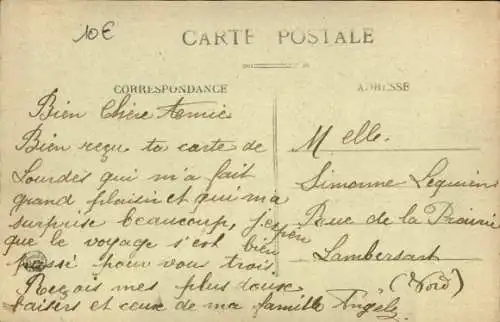 10€
CARTE POSTALE
CORRESPONDANCE
ADRESSE
Bien Chère Amie
Bien reçu ta carte de
Lourdes qui m'a fait
grand plaisir et qui m'a
surprise beaucoup, j'espère
que le voyage s'est bien
passé pour vous trois.
Reçois mes plus doux
baisers et ceux de ma famille Angèle
Melle.
Simonne
Rue de la Prairie
Lambersart
(Nord)